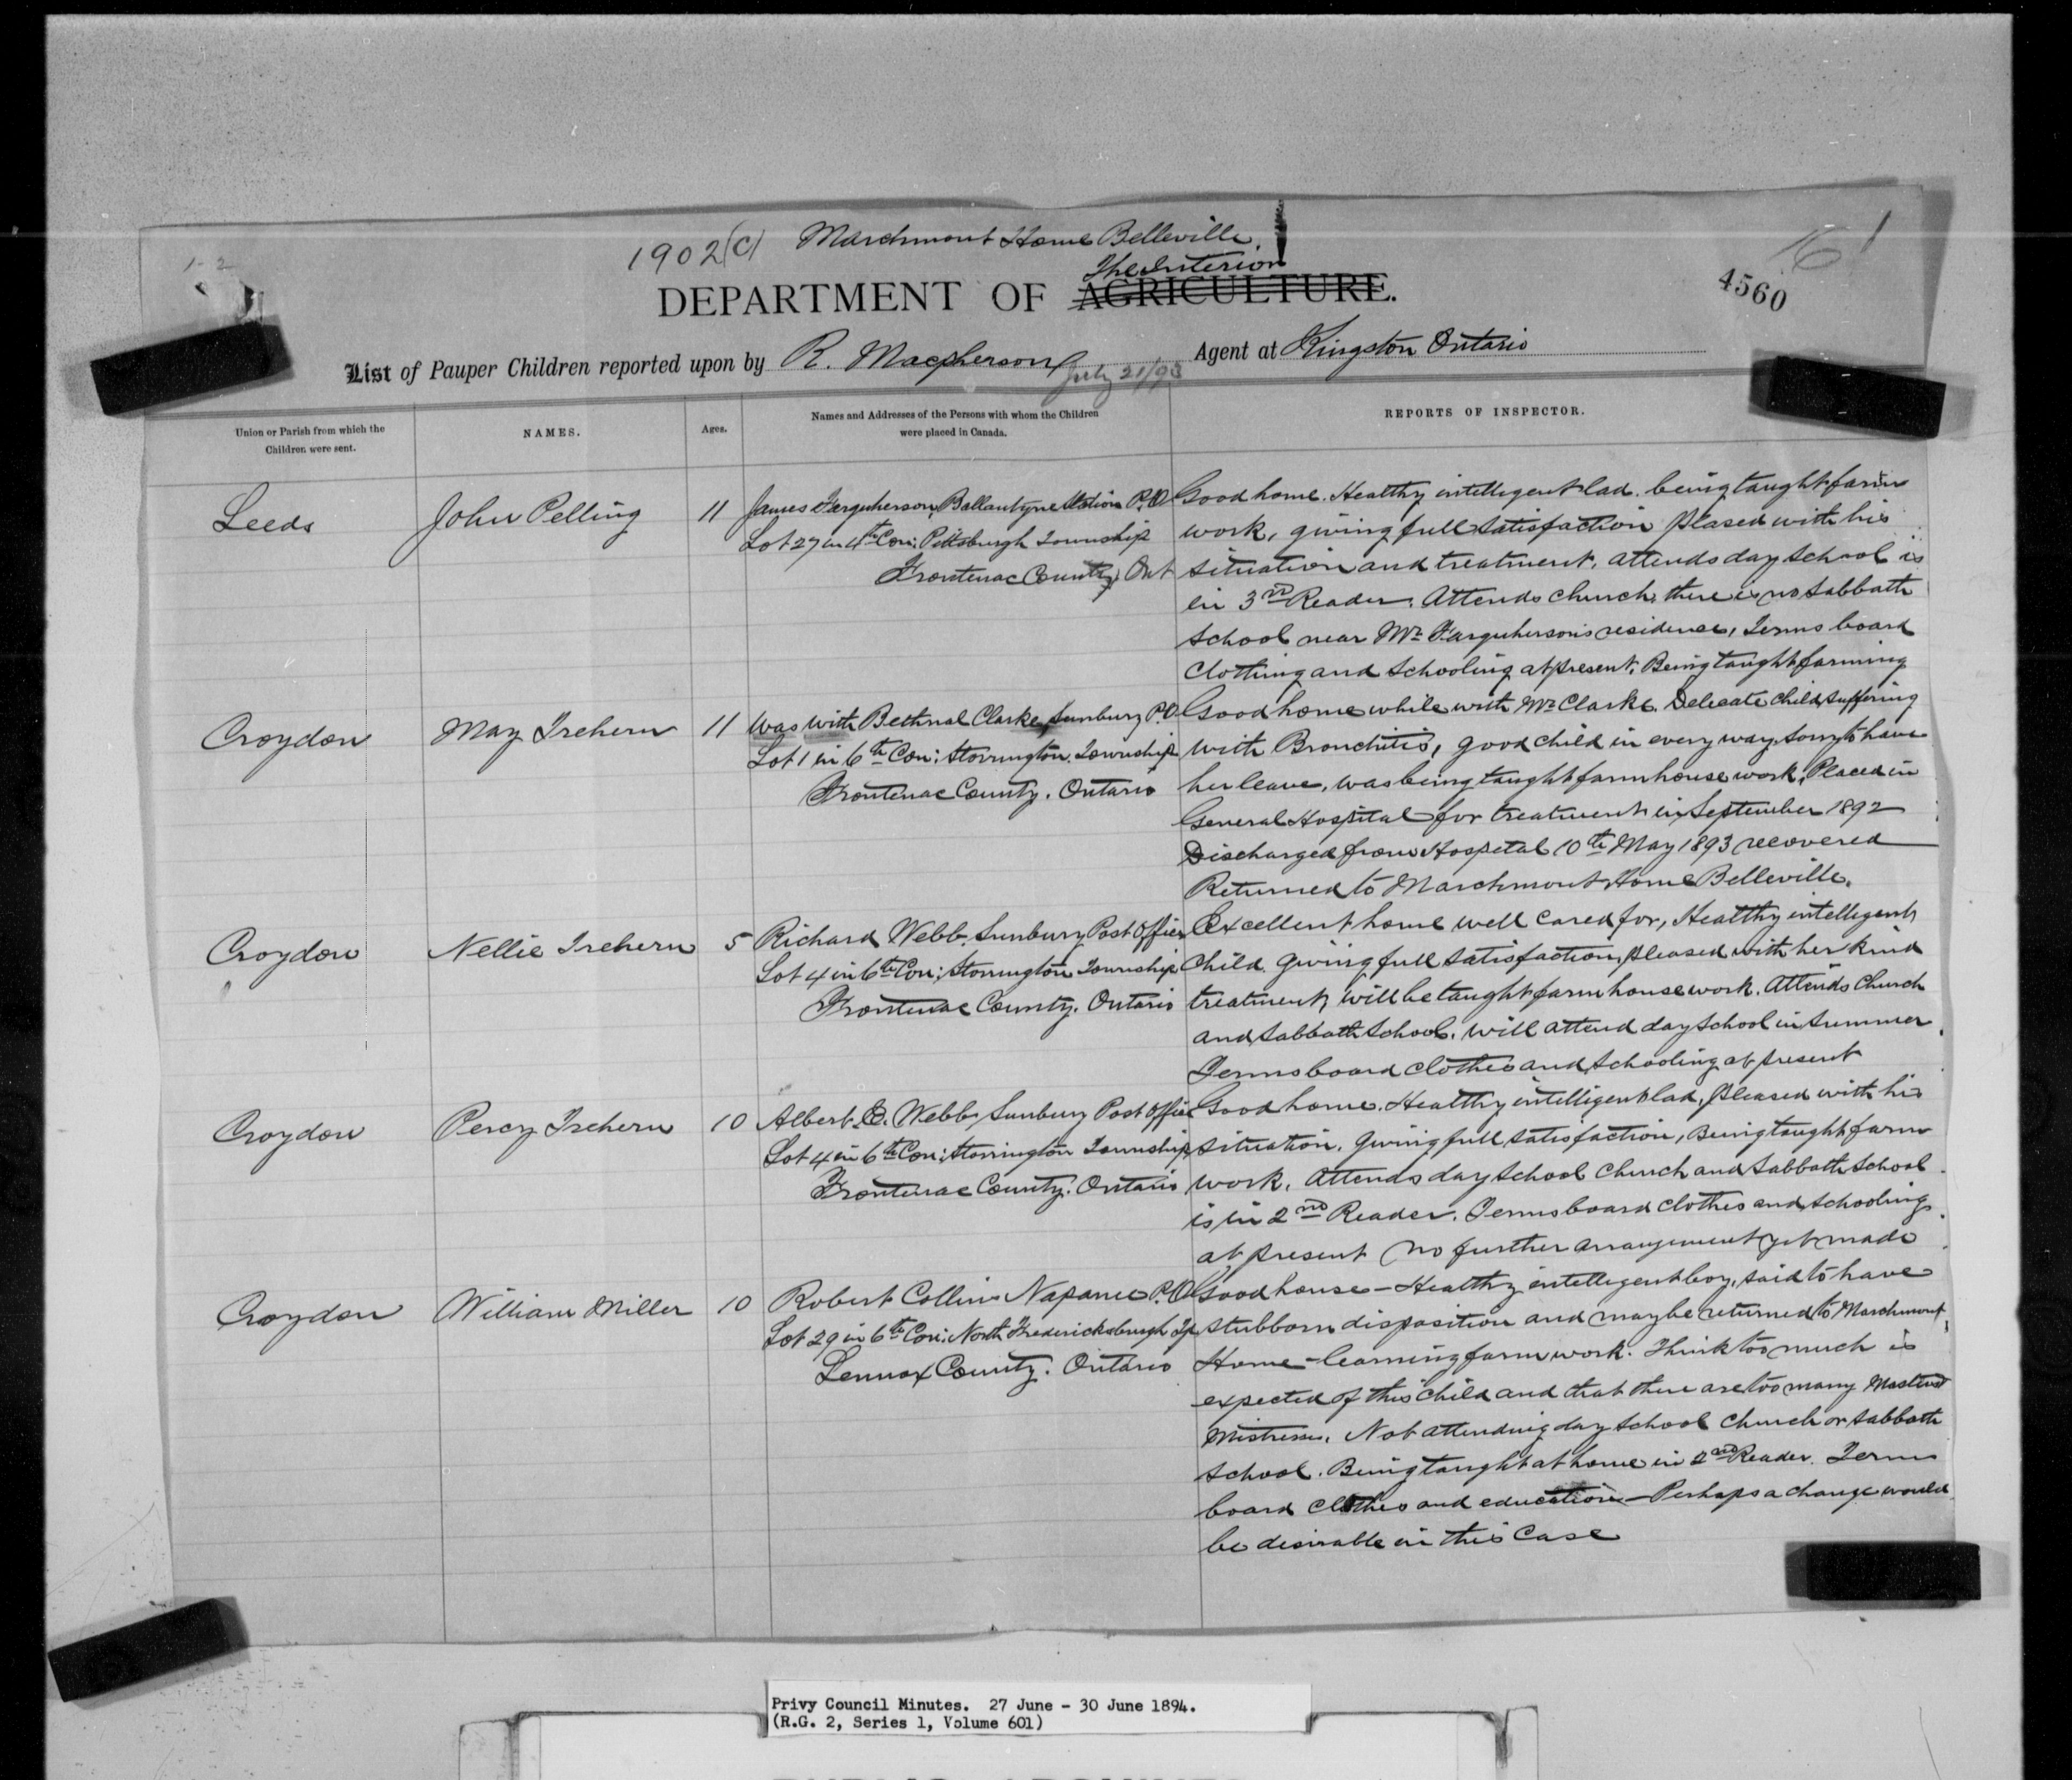 1902(C) Marchmont Home Belleville.
1-2
161
4560
The Interior
DEPARTMENT OF AGRICULTURE.
List of Pauper Children reported upon by R. Macpherson Agent at Kingston Ontario
July 21/93
Union or Parish from which the Children were sent.
NAMES.
Ages.
Names and Addresses of the Persons with whom the Children were placed in Canada.
REPORTS OF INSPECTOR.
Leeds
John Pelling
11
James Farquherson, Ballantyne Station P.O
Lot 27 in 4th Con: Pittsburgh Township
Frontenac County, Ont
Good home. Healthy intelligent lad. being taught farm
work, giving full satisfaction pleased with his
situation and treatment. attends day school is
in 3rd Reader. Attends Church, there is no Sabbath
School near Mr Farquherson's residence, Terms board
Clothing and Schooling at present. Being taught farming
Croydon
May Trehern
11
Was with Bethnal Clarke, Sunbury P.O
Lot 1 in 6th Con: Storrington Township
Frontenac County. Ontario
Good home while with Mr Clarke. Delicate child, suffering
with Bronchitis, good child in every way, sorry to have
her leave, was being taught farm house work. Placed in
General Hospital for treatment in September 1892
Discharged from Hospital 10th May 1893 recovered
Returned to Marchmont Home Belleville.
Croydon
Nellie Trehern
5
Richard Webb, Sunbury Post Office
Lot 4 in 6th Con: Storrington Township
Frontenac County. Ontario
Excellent home well cared for, Healthy intelligent
Child. Giving full satisfaction, pleased with her kind
treatment, will be taught farm house work. Attends Church
and Sabbath School. will attend day School in Summer.
Terms board clothes and Schooling at present
Croydon
Percy Trehern
10
Albert E. Webb, Sunbury Post Office
Lot 4 in 6th Con: Storrington Township
Frontenac County. Ontario
Good home. Healthy intelligent lad, pleased with his
situation. Giving full satisfaction, Being taught farm
work. Attends day School Church and Sabbath School
is in 2nd Reader. Terms board clothes and Schooling.
at present no further arrangement yet made
Croydon
William Miller
10
Robert Collins Napanee P.O
Lot 29 in 6th Con: North Fredericksburgh Tp
Lennox County. Ontario
Good house - Healthy intelligent boy, said to have
stubborn disposition and may be returned to Marchmont
Home - learning farm work. Think too much is
expected of this Child and that there are too many Masters
Mistresses. Not attending day School Church or Sabbath
School. Being taught at home in 2nd Reader. Terms
board clothes and education - Perhaps a change would
be desirable in this Case
Privy Council Minutes. 27 June - 30 June 1894.
(R.G. 2, Series 1, Volume 601)